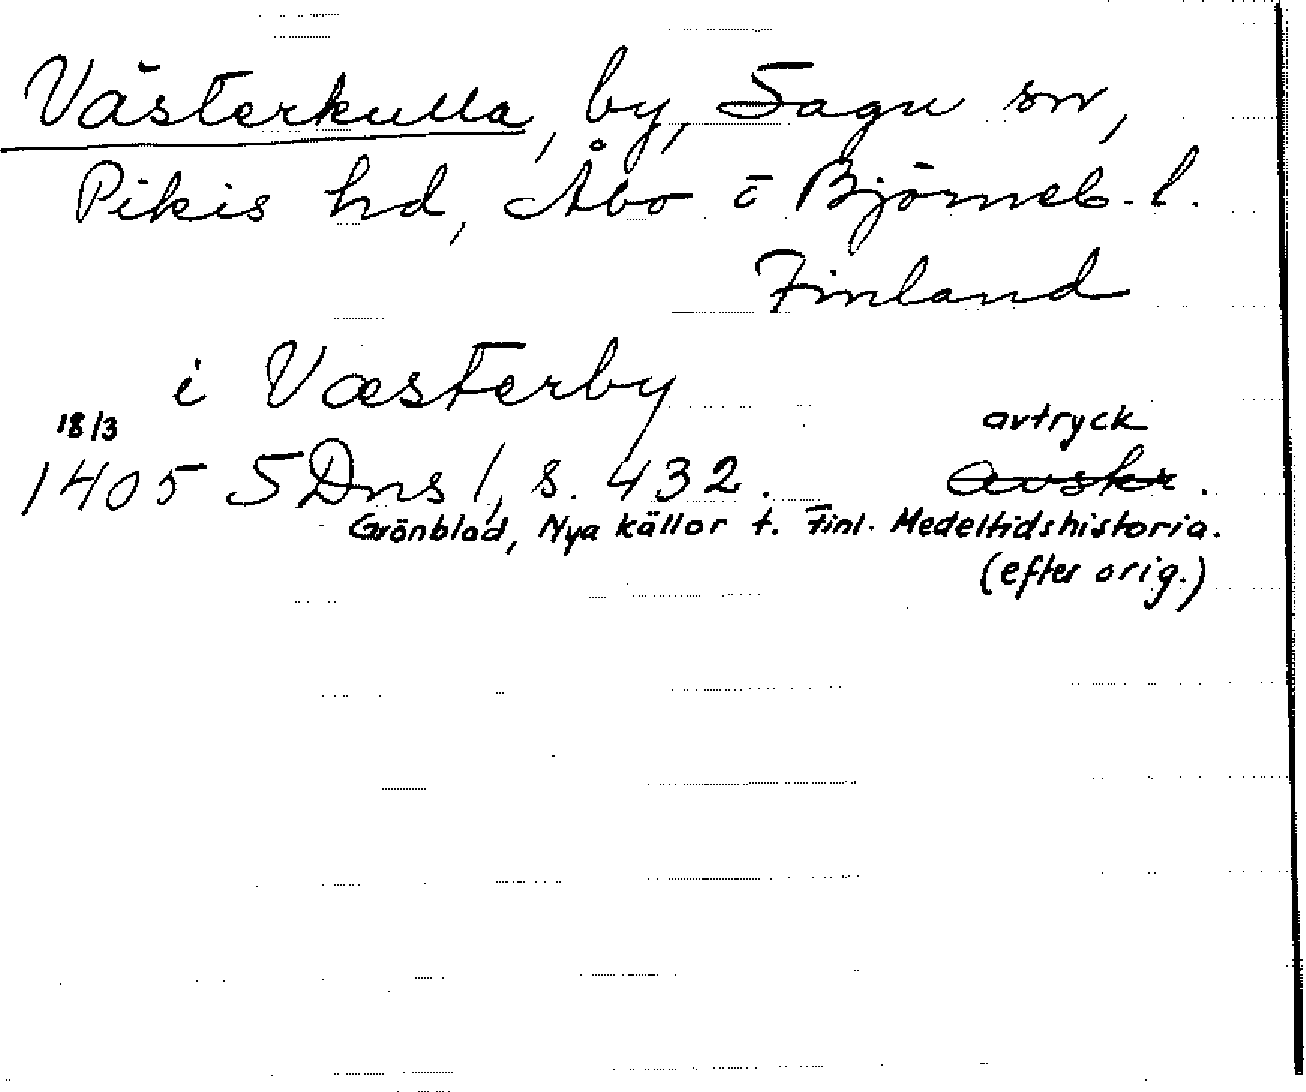 Västerkulla, by, Sagu sn,
Pikis hd, Åbo o Björneb. l.
Finland
i Væsterby
18/3
avtryck
1405 SDns 1, s. 432. avskr.
Grönblad, Nya källor t. Finl. Medeltidshistoria.
(efter orig.)